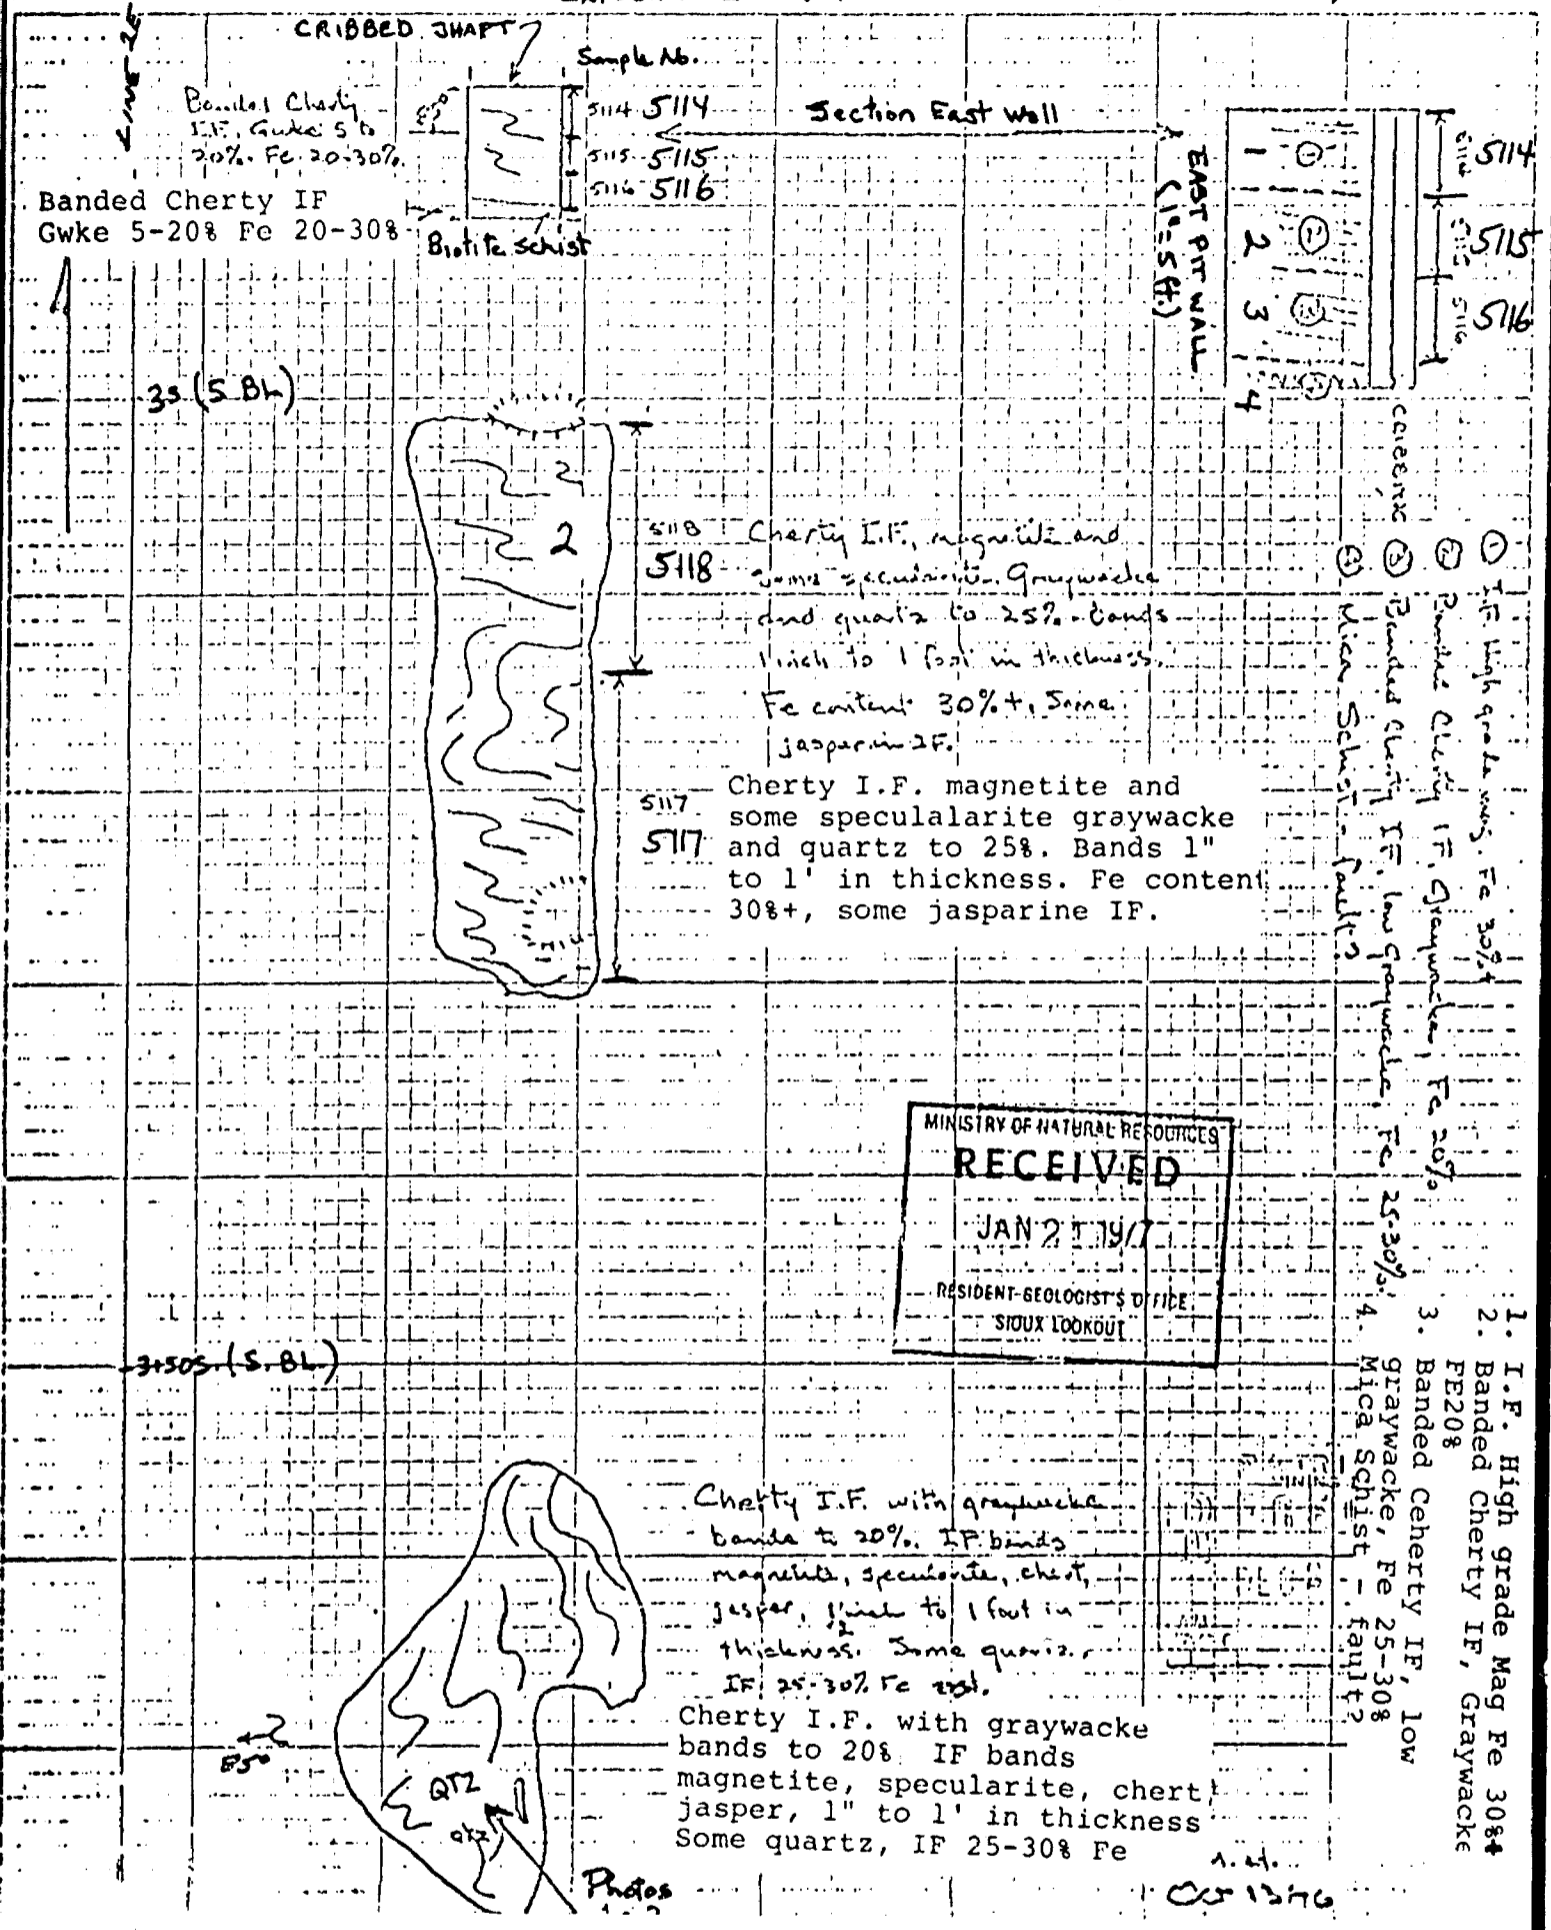 CRIBBED SHAFT
LINE 2E
Sample No.
Banded Cherty
I.F., Gwke 5 to
20%. Fe 20-30%
Banded Cherty IF
Gwke 5-20% Fe 20-30%
5114 5114
5115 5115
5116 5116
Biotite schist
Section East Wall
EAST PIT WALL
(1"=5 ft.)
1 ①
2 ②
3 ③
4 ④
5114 5114
5115 5115
5116 5116
CRIBBING
① I.F. high grade mag. Fe 30%+
② Banded Cherty IF, Graywacke, Fe 20%
③ Banded Cherty IF, low Graywacke, Fe 25-30%
④ Mica Schist - fault?
1. I.F. High grade Mag Fe 30%+
2. Banded Cherty IF, Graywacke
FE20%
3. Banded Ceherty IF, low
graywacke, Fe 25-30%
4. Mica Schist - fault?
3S (S BL)
2
5118
5118
Cherty I.F., magnetite and
some specularite. Graywacke
and quartz to 25%. bands
1 inch to 1 foot in thickness.
Fe content 30%+. Some
jasper in IF.
5117
5117
Cherty I.F. magnetite and
some speculalarite graywacke
and quartz to 25%. Bands 1"
to 1' in thickness. Fe content
30%+, some jasparine IF.
MINISTRY OF NATURAL RESOURCES
RECEIVED
JAN 21 1977
RESIDENT GEOLOGIST'S OFFICE
SIOUX LOOKOUT
3+50S (S. BL)
Cherty I.F. with graywacke
bands to 20%. IF bands
magnetite, specularite, chert,
jasper, 1 inch to 1 foot in
thickness. Some quartz.
IF 25-30% Fe est.
Cherty I.F. with graywacke
bands to 20% IF bands
magnetite, specularite, chert
jasper, 1" to 1' in thickness
Some quartz, IF 25-30% Fe
85°
QTZ
QTZ
Photos
Oct 13/76